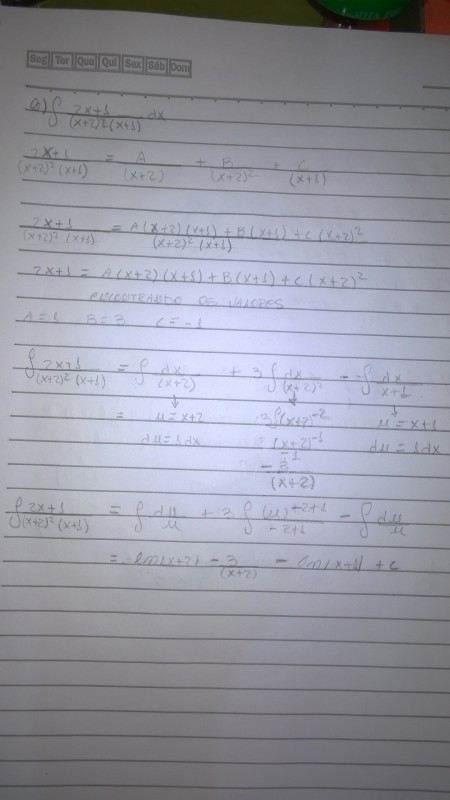 Seg Ter Qua Qui Sex Sáb Dom
a) ∫ 2x+1/(x+2)²(x+1) dx
2x+1/(x+2)²(x+1) = A/(x+2) + B/(x+2)² + C/(x+1)
2x+1/(x+2)²(x+1) = A(x+2)(x+1) + B(x+1) + C(x+2)²/(x+2)²(x+1)
2x+1 = A(x+2)(x+1) + B(x+1) + C(x+2)²
ENCONTRANDO OS VALORES
A=1 B=3 C=-1
∫ 2x+1/(x+2)²(x+1) = ∫ dx/(x+2) + 3∫ dx/(x+2)² - ∫ dx/x+1
↓ ↓ ↓
= u=x+2 3∫(x+2)⁻² u=x+1
du=1dx = (x+2)⁻¹/-1 du=1dx
-3/(x+2)
∫ 2x+1/(x+2)²(x+1) = ∫ du/u + 3∫ (u)⁻²⁺¹/-2+1 - ∫ du/u
= ln|x+2| - 3/(x+2) - ln|x+1| + c